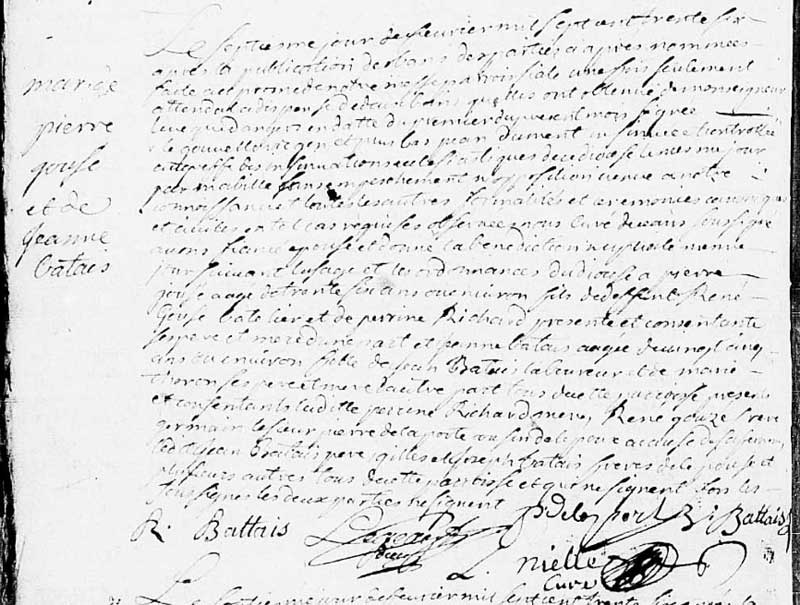 mariage
pierre
gouse
et de
Jeanne
batais
Le septiesme jour de feuvrier mil sept cent trente six
apres la publication des bans des parties ci apres nommées
faite au prone de notre messe paroissiale une fois seulement
attendu la dispense de deux bans qu'ils ont obtenue de monseigneur
l'eveque d'angers en datte du premier du present mois signée
le gouvello vic gen et plus bas par dument insinuée et controllée
au greffe des insinuations eclesiastiques de ce diocese le mesme jour
par mabille sans empeschement n'y opposition venue a notre
connoissance et toutes les autres formalités et ceremonies canoniques
et civiles en tel cas requises observées nous curé de ceans soussigné
avons fiancé epousé et donné la benediction nuptiale le meme
jour suivant l'usage et les ordonnances du diocese a pierre
gouse aagé de trente six ans ou environ fils de deffunt René
Gouse batelier et de perrine Richard presente et consentante
ses pere et mere d'une part et jeanne batais aagée de vingt cinq
ans ou environ fille de jean Batais laboureur et de marie
thoron ses pere et mere d'autre part tous de cette paroisse presents
et consentants laditte perrine Richard mere, René gouze frere
germain, le sieur pierre de la porte cousin de le poux a cause de sa femme
ledit jean Batais pere, gilles et joseph batais freres de le pouse et
plusieurs autres tous de cette paroisse et qui ne signent fors les
soussignés les deux parties ne signent
R. Battais P. de la porte R. Battais
nielle
Curé
Le septiesme jour de feuvrier mil sept cent trente six